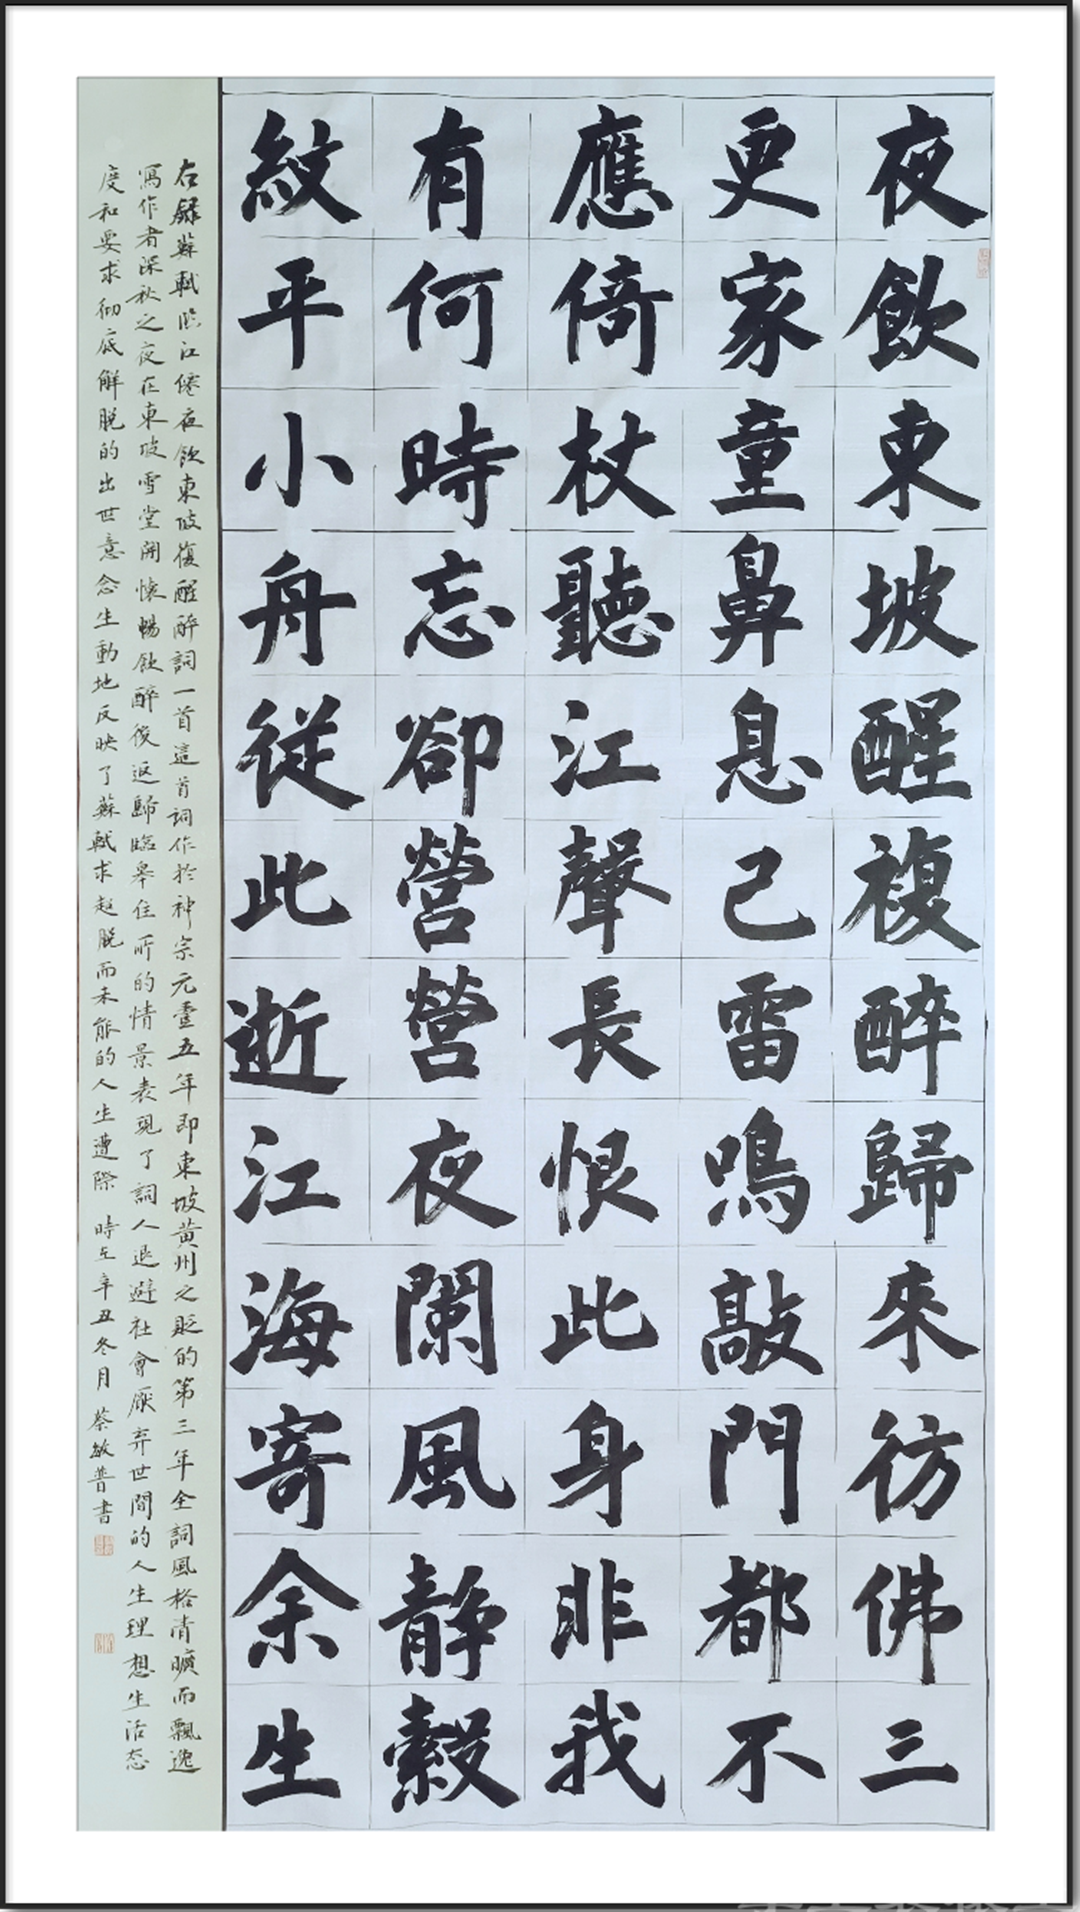 夜飲東坡醒複醉歸來彷佛三
更家童鼻息己雷鳴敲門都不
應倚杖聽江聲長恨此身非我
有何時忘卻營營夜闌風静縠
紋平小舟従此逝江海寄余生
右録蘇軾臨江僊夜飲東坡復醒醉詞一首這首詞作於神宗元豊五年即東坡黄州之貶的第三年全詞風格清曠而飄逸
寫作者深秋之夜在東坡雪堂開懷暢飲醉後返歸臨皋住所的情景表現了詞人退避社會厭弃世間的人生理想生活态
度和要求彻底解脱的出世意念生動地反映了蘇軾求超脱而未能的人生遭際 時在辛丑冬月 蔡敏普書